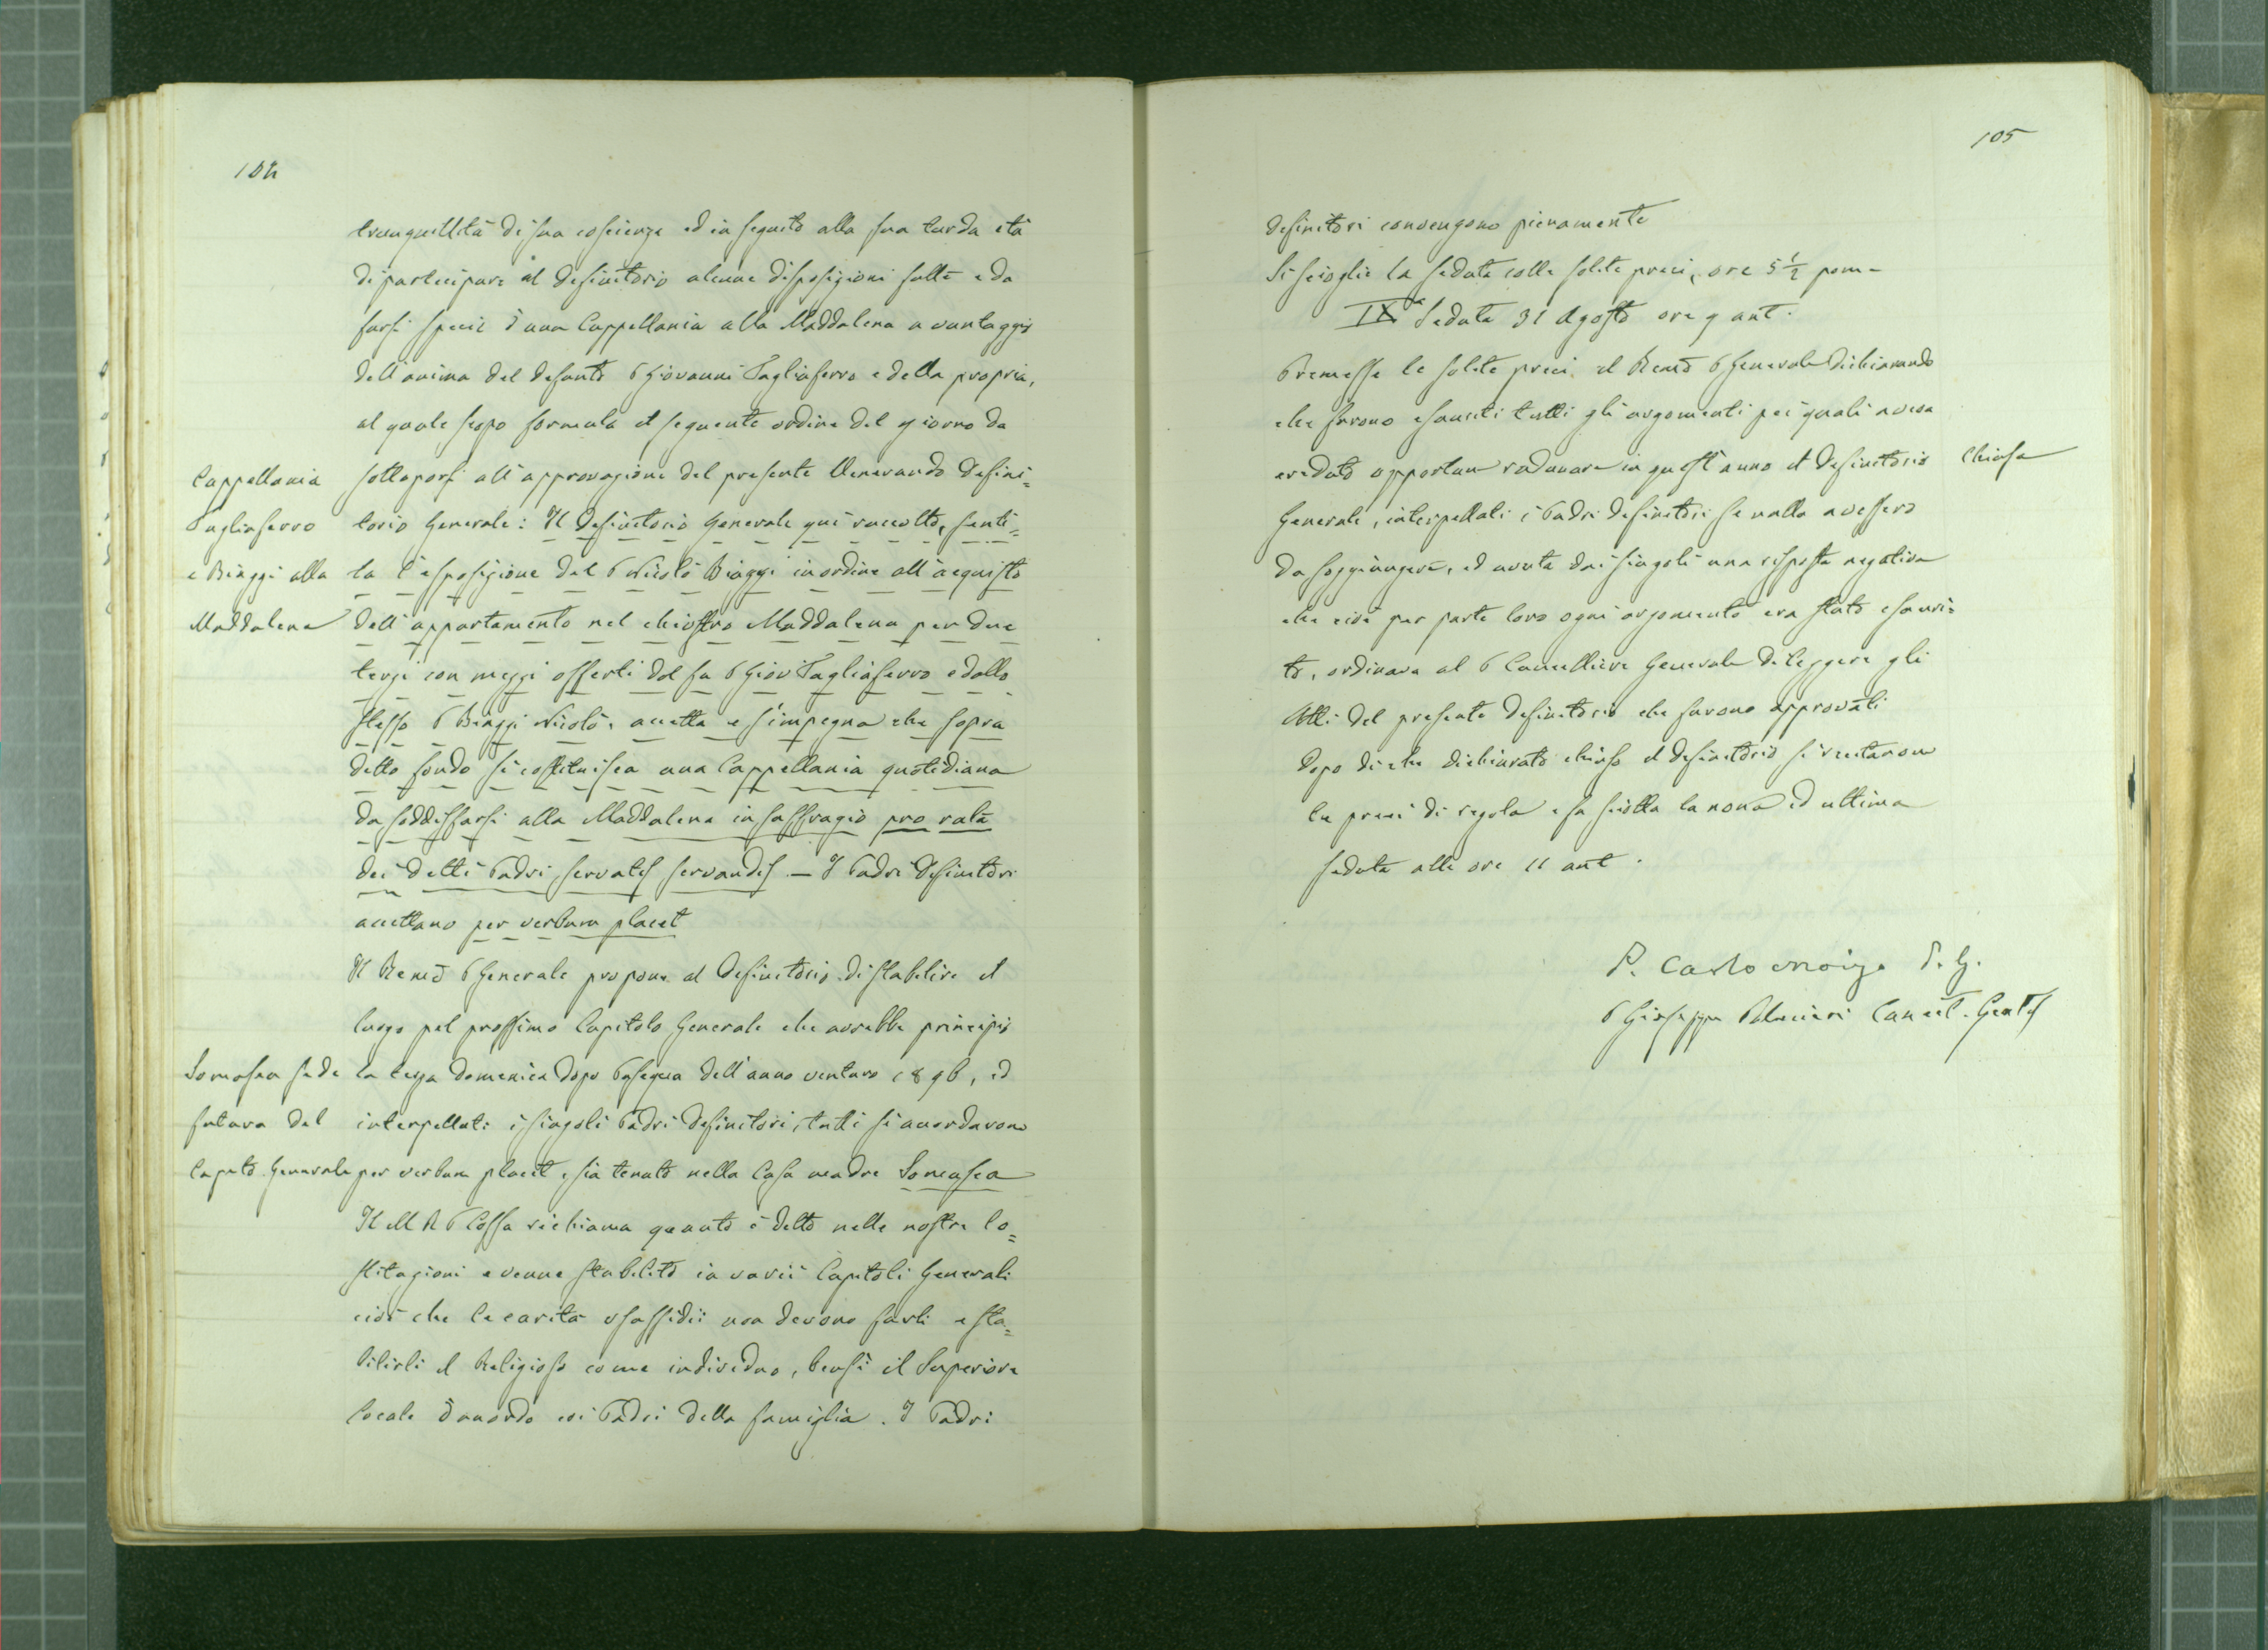 104
tranquillità di sua coscienza ed in seguito alla sua tarda età
di partecipare al Definitorio alcune disposizioni fatte e da
farsi specie d'una Cappellania alla Maddalena a vantaggio
dell'anima del defunto P Giovanni Tagliaferro e della propria,
al quale scopo formula il seguente ordine del giorno da
sottoporsi all'approvazione del presente Venerando Defini=
torio Generale: Il Definitorio Generale qui raccolto, senti=
ta l'esposizione del P Nicolò Biaggi in ordine all'acquisto
dell'appartamento nel chiostro Maddalena per due
terzi con mezzi offerti dal fu P Giov Tagliaferro e dallo
stesso P Biaggi Nicolò, accetta e s'impegna che sopra
detto fondo si costituisca una Cappellania quotidiana
da soddisfarsi alla Maddalena in suffragio pro rata
dei detti Padri servatis servandis. — I Padri Definitori
accettano per verbum placet
Cappellania
Tagliaferro
e Biaggi alla
Maddalena
Il Remo P Generale propone al Definitorio di stabilire il
luogo pel prossimo Capitolo Generale che avrebbe principio
la terza domenica dopo Pasqua dell'anno venturo 1896, ed
interpellati i singoli Padri Definitori, tutti si accordarono
per verbum placet sia tenuto nella Casa madre Somasca
Somasca sede
futura del
Capito Generale
Il M R P Cossa richiama quanto è detto nelle nostre Co=
stituzioni e venne stabilito in varii Capitoli Generali
cioè che le carità o sussidii non devono farli e sta=
bilirli il Religioso come individuo, bensì il Superiore
locale d'accordo coi Padri della famiglia. I Padri
105
Definitori convengono pienamente
Si scioglie la seduta colle solite preci, ore 5 1/2 pom-
IXa Seduta 31 Agosto ore 9 ant.
Premesse le solite preci il Remo P Generale dichiarando
che furono esauriti tutti gli argomenti pei quali aveva
creduto opportuno radunare in quest'anno il Definitorio
Generale, interpellati i Padri definitori se nulla avessero
da soggiungere, ed avuta dai singoli una risposta negativa
che cioè per parte loro ogni argomento era stato esauri=
to, ordinava al P Cancelliere Generale di leggere gli
Atti del presente Definitorio che furono approvati
Dopo di che dichiarato chiuso il Definitorio si recitarono
le preci di regola e fu sciolta la nona ed ultima
seduta alle ore 11 ant.
Chiusa
P. Carlo Moizo P. G.
P Giuseppe Palmieri Cancell. Genlis